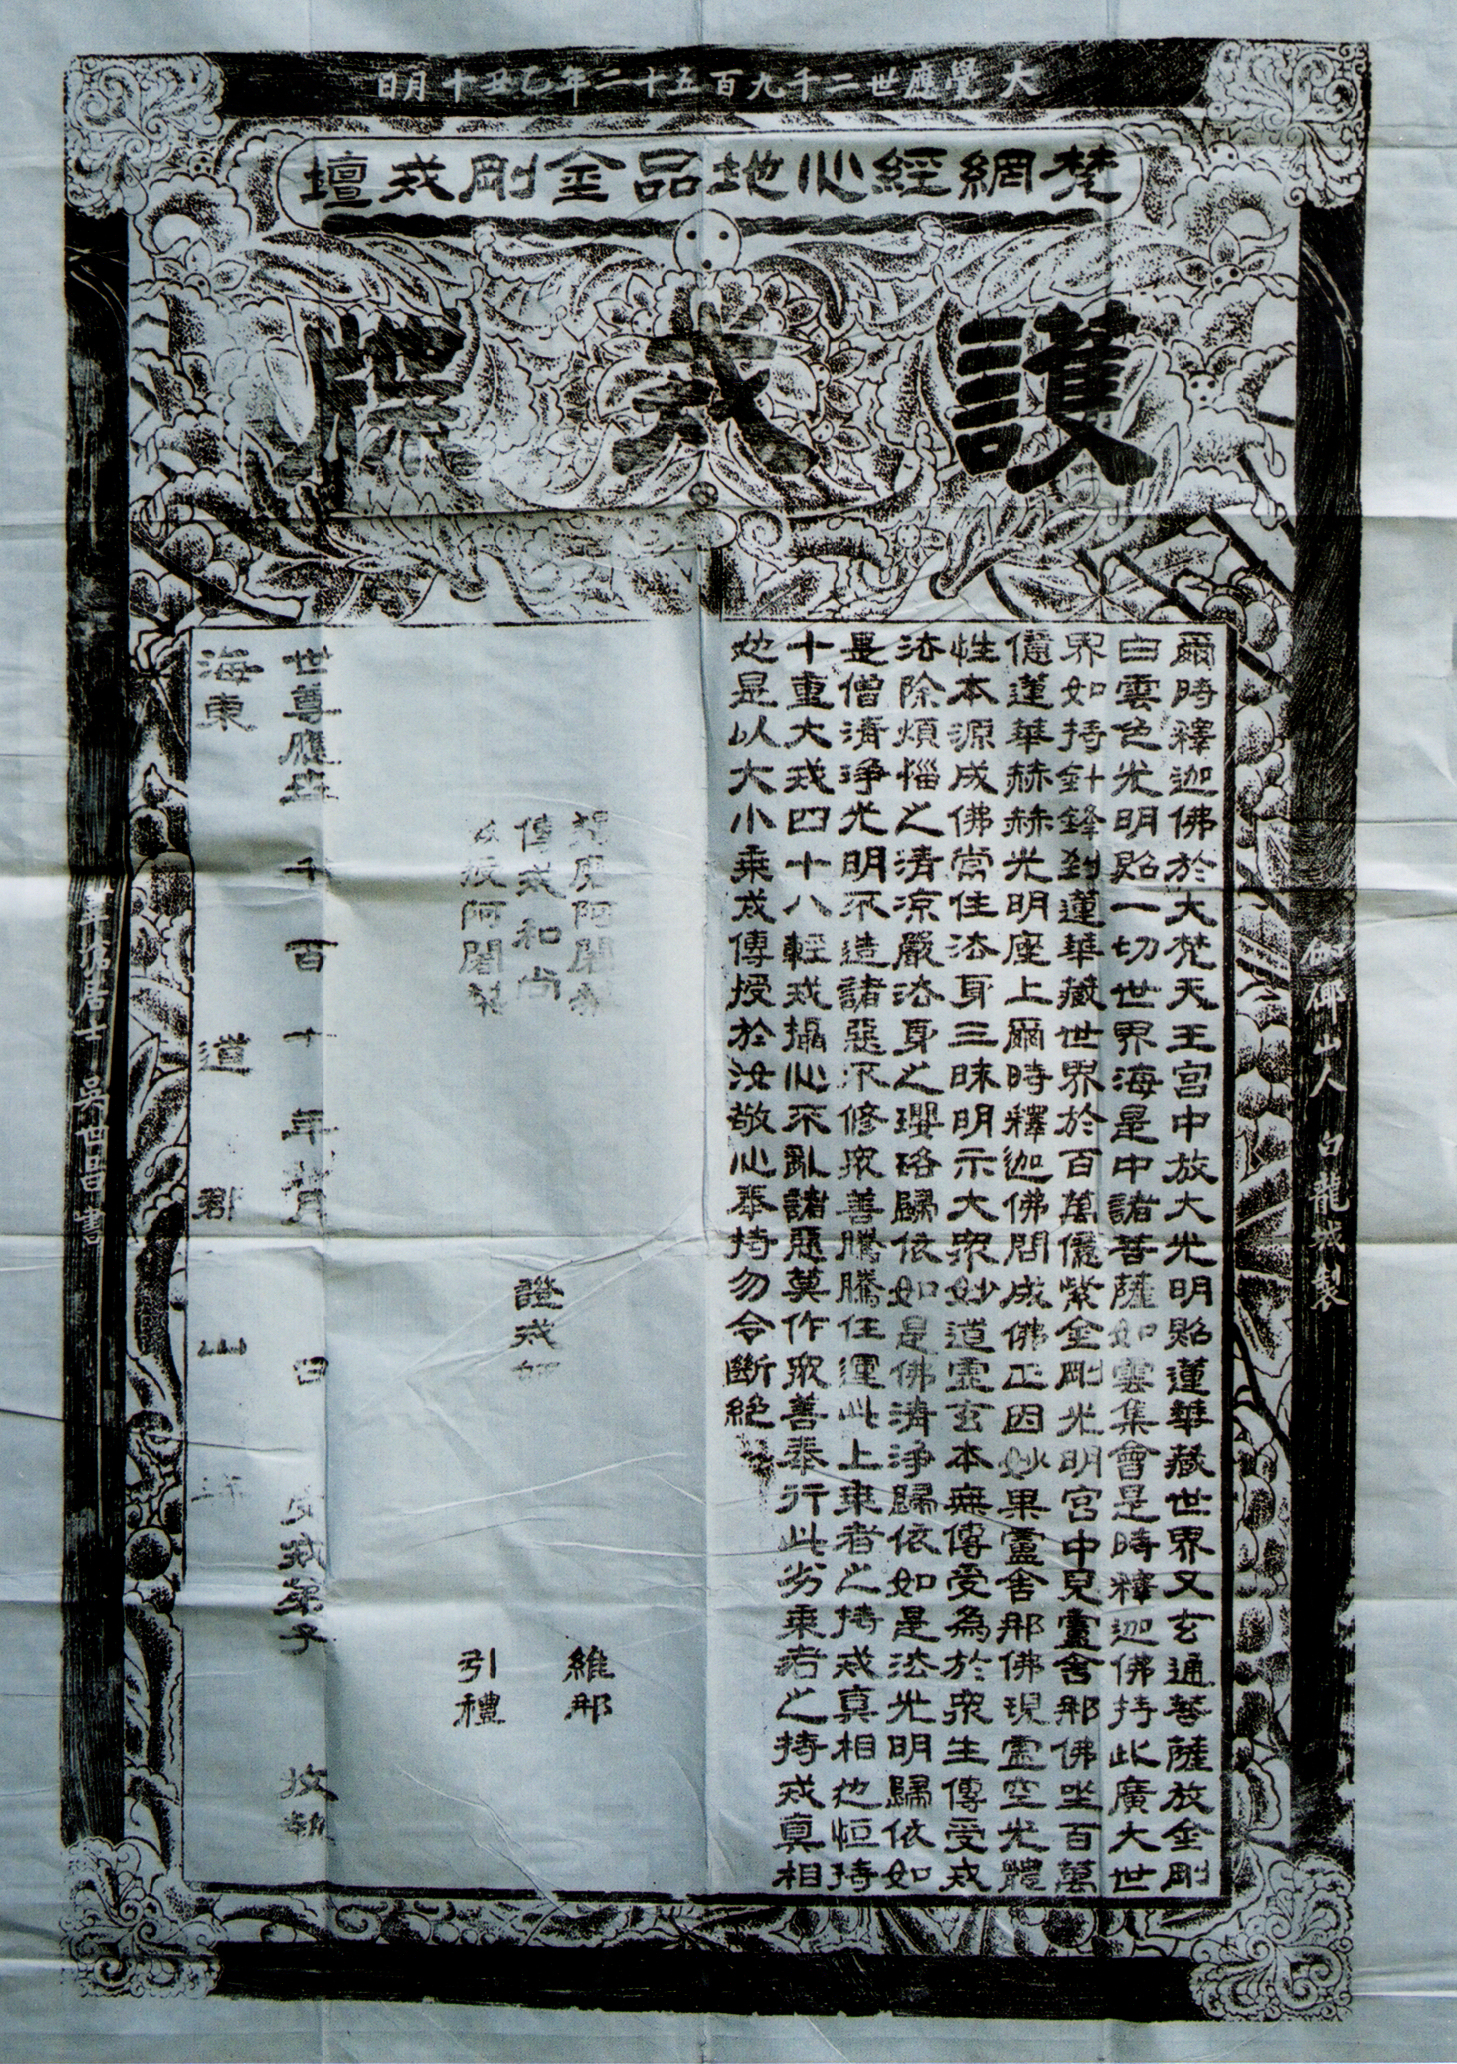 大覺應世二千九百五十二年乙丑十月日
梵網經心地品金剛戒壇
護戒牒
爾時釋迦佛於大梵天王宮中放大光明照蓮華藏世界又玄通菩薩放金剛
白雲色光明照一切世界海是中諸菩薩如雲集會是時釋迦佛持此廣大世
界如持針鋒到蓮華藏世界於百萬億紫金剛光明宮中見盧舍那佛坐百萬
億蓮華赫赫光明座上爾時釋迦佛問成佛正因妙果盧舍那佛現虛空光體
性本源成佛常住法身三昧明示大眾妙道虛玄本無傳受為於眾生傳受戒
法除煩惱之清涼嚴法身之瓔珞歸依如是佛清淨歸依如是法光明歸依如
是僧清淨光明不造諸惡不修眾善騰騰任運此上乘者之持戒真相也恒持
十重大戒四十八輕戒攝心不亂諸惡莫作眾善奉行此劣乘者之持戒真相
也是以大小乘戒傳授於汝敬心奉持勿令斷絕
羯磨阿闍梨
傳戒和尚
教授阿闍梨
證戒師
維那
引禮
世尊應世 千 百 十 年 月 日 受戒弟子 收執
海東 道 郡 山 寺
伽倻山人 白龍城製
居士 吳世昌書